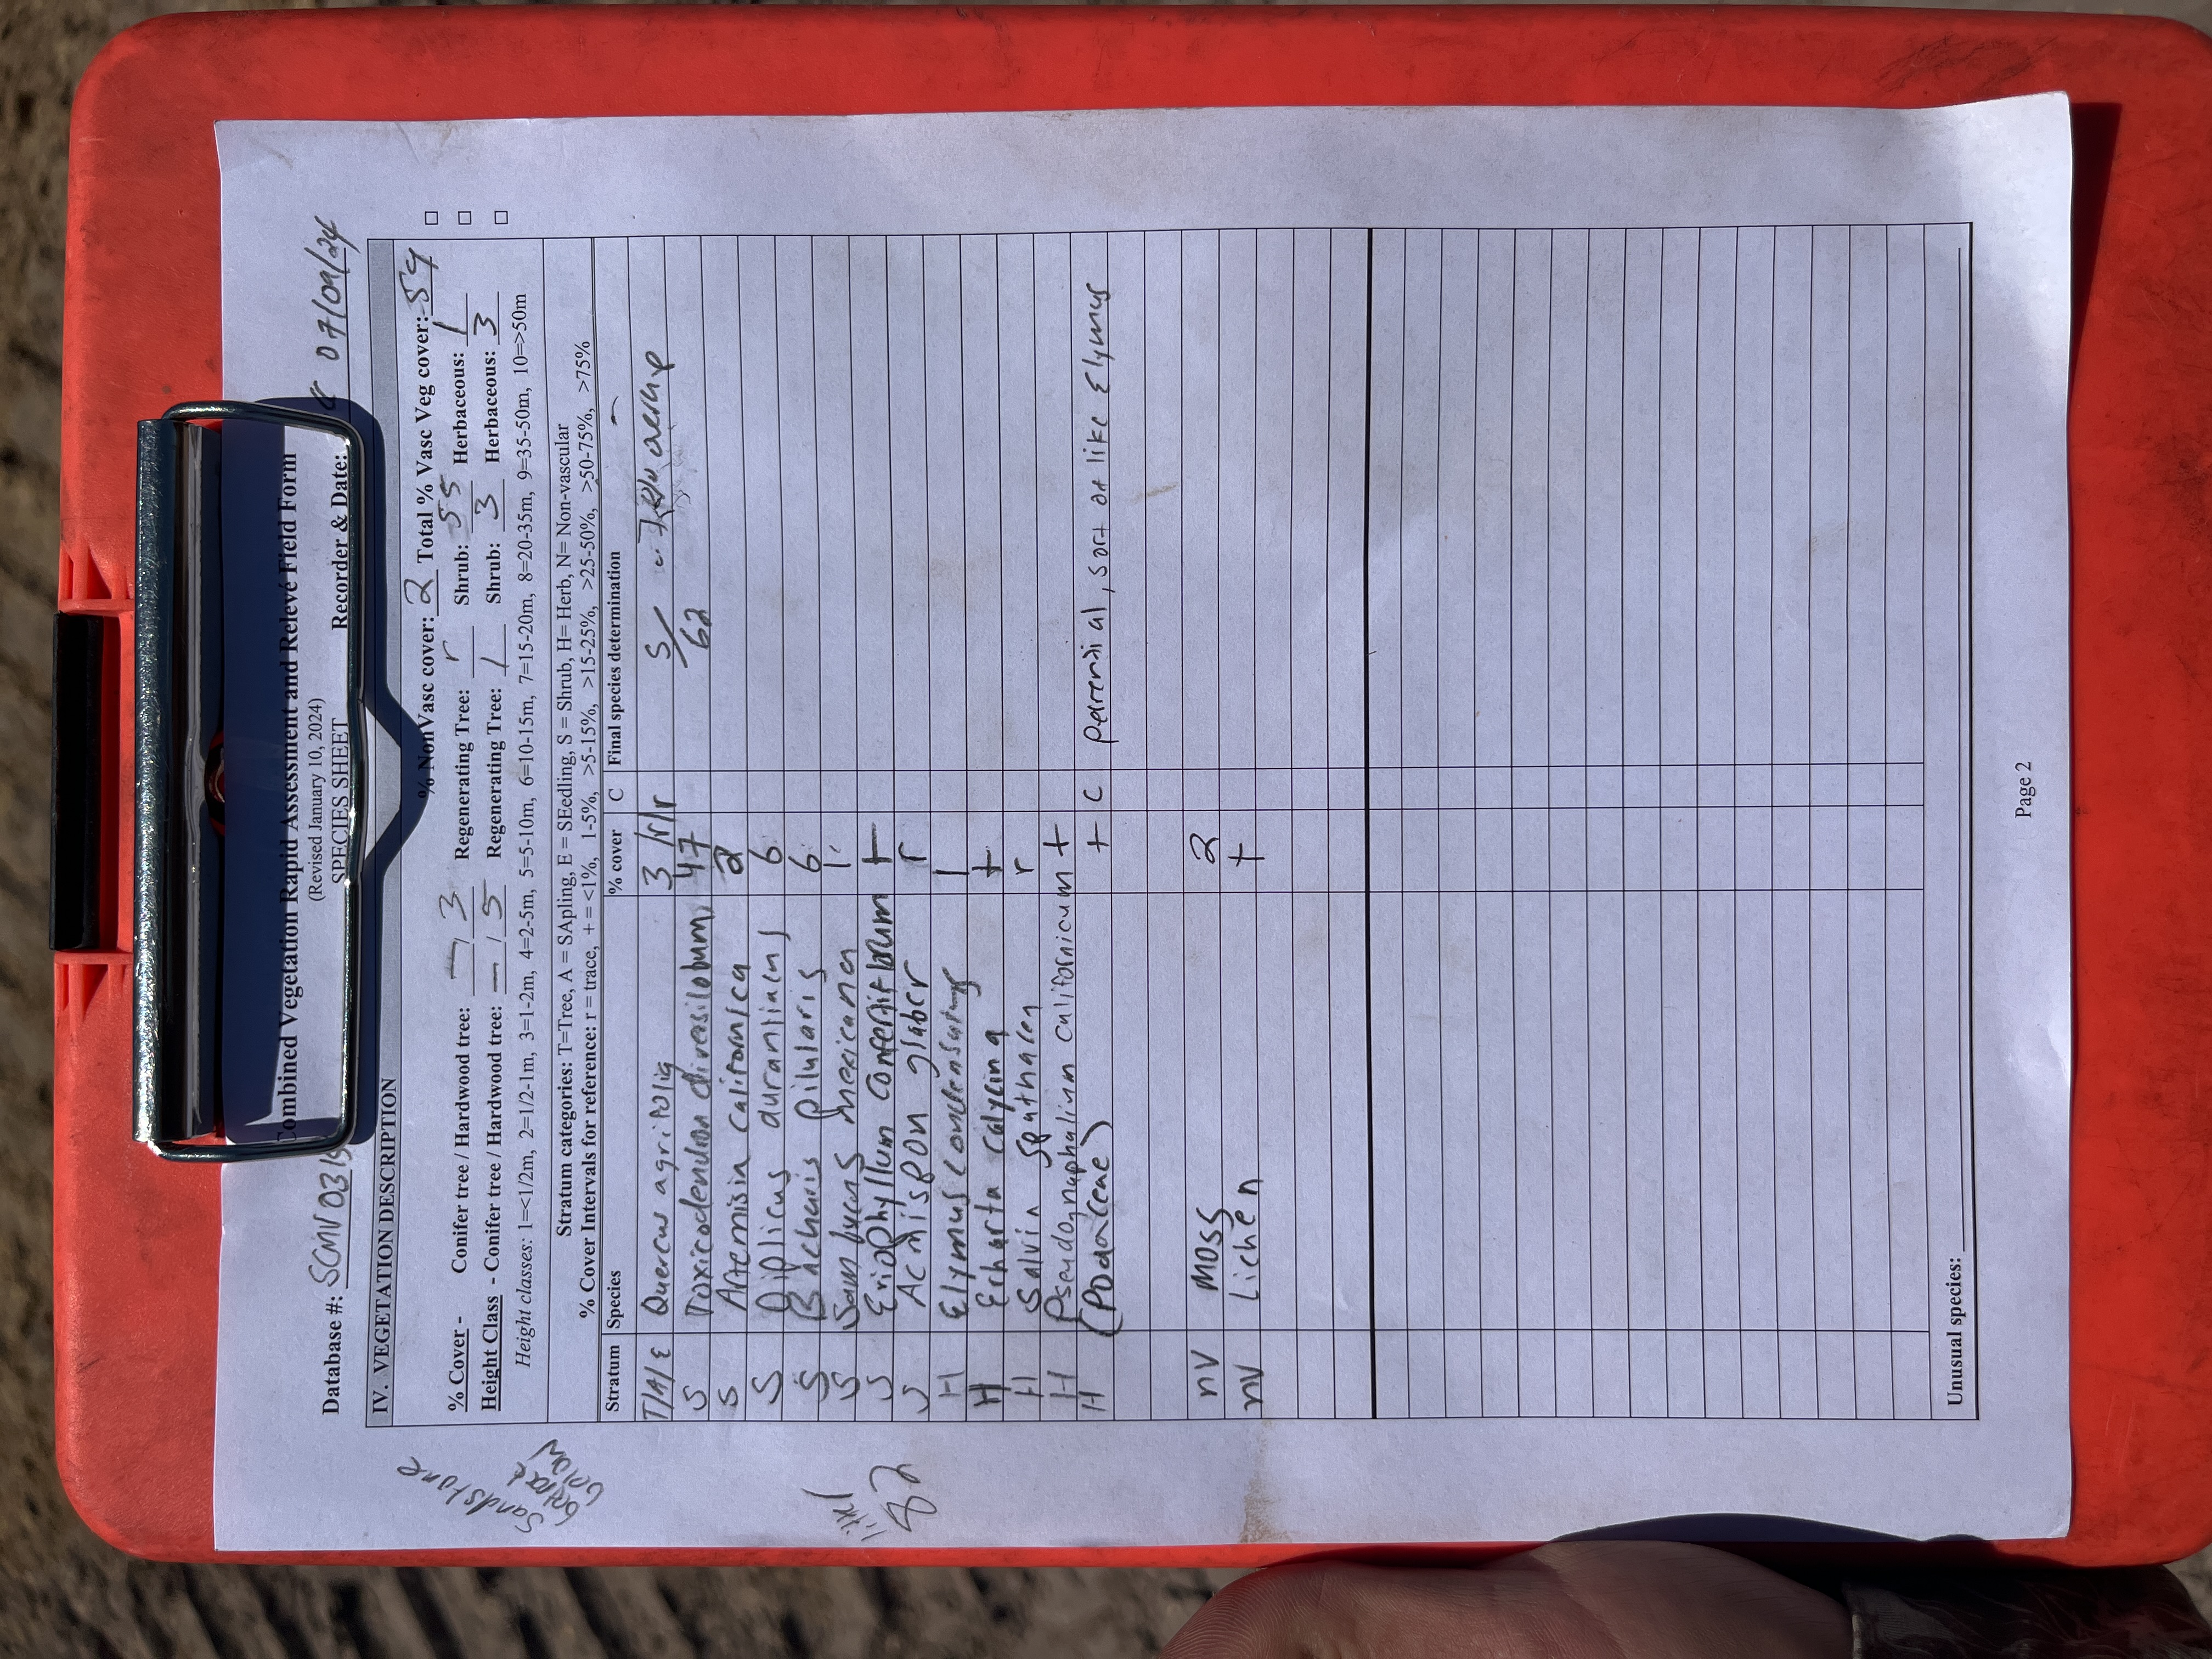 Combined Vegetation Rapid Assessment and Relevé Field Form
(Revised January 10, 2024)
SPECIES SHEET
Database #: SCMV031 Recorder & Date: 07/09/24
IV. VEGETATION DESCRIPTION
% NonVasc cover: 2 Total % Vasc Veg cover: 59
% Cover - Conifer tree / Hardwood tree: — / 3 Regenerating Tree: r Shrub: 55 Herbaceous: 1
Height Class - Conifer tree / Hardwood tree: — / 5 Regenerating Tree: 1 Shrub: 3 Herbaceous: 3
Height classes: 1=<1/2m, 2=1/2-1m, 3=1-2m, 4=2-5m, 5=5-10m, 6=10-15m, 7=15-20m, 8=20-35m, 9=35-50m, 10=>50m
Sandstone
below
Stratum categories: T=Tree, A = SApling, E = SEedling, S = Shrub, H= Herb, N= Non-vascular
% Cover Intervals for reference: r = trace, + = <1%, 1-5%, >5-15%, >15-25%, >25-50%, >50-75%, >75%
Stratum Species % cover C Final species determination
T/A/E Quercus agrifolia 3/r/r
S Toxicodendron diversilobum 47
62
S Artemisia californica 2
S Diplicus aurantiacus 6
S Baccharis pilularis 6
S Sambucus mexicana 1
S Eriophyllum confertiflorum +
82
S Acmispon glaber r
H Elymus condensatus 1
H Erharta calycina +
H Salvia spathacea r
H Pseudognaphalium californicum +
H (Poaaceae) + C perennial, sort of like Elymus
NV Moss 2
NV Lichen +
Unusual species:
Page 2